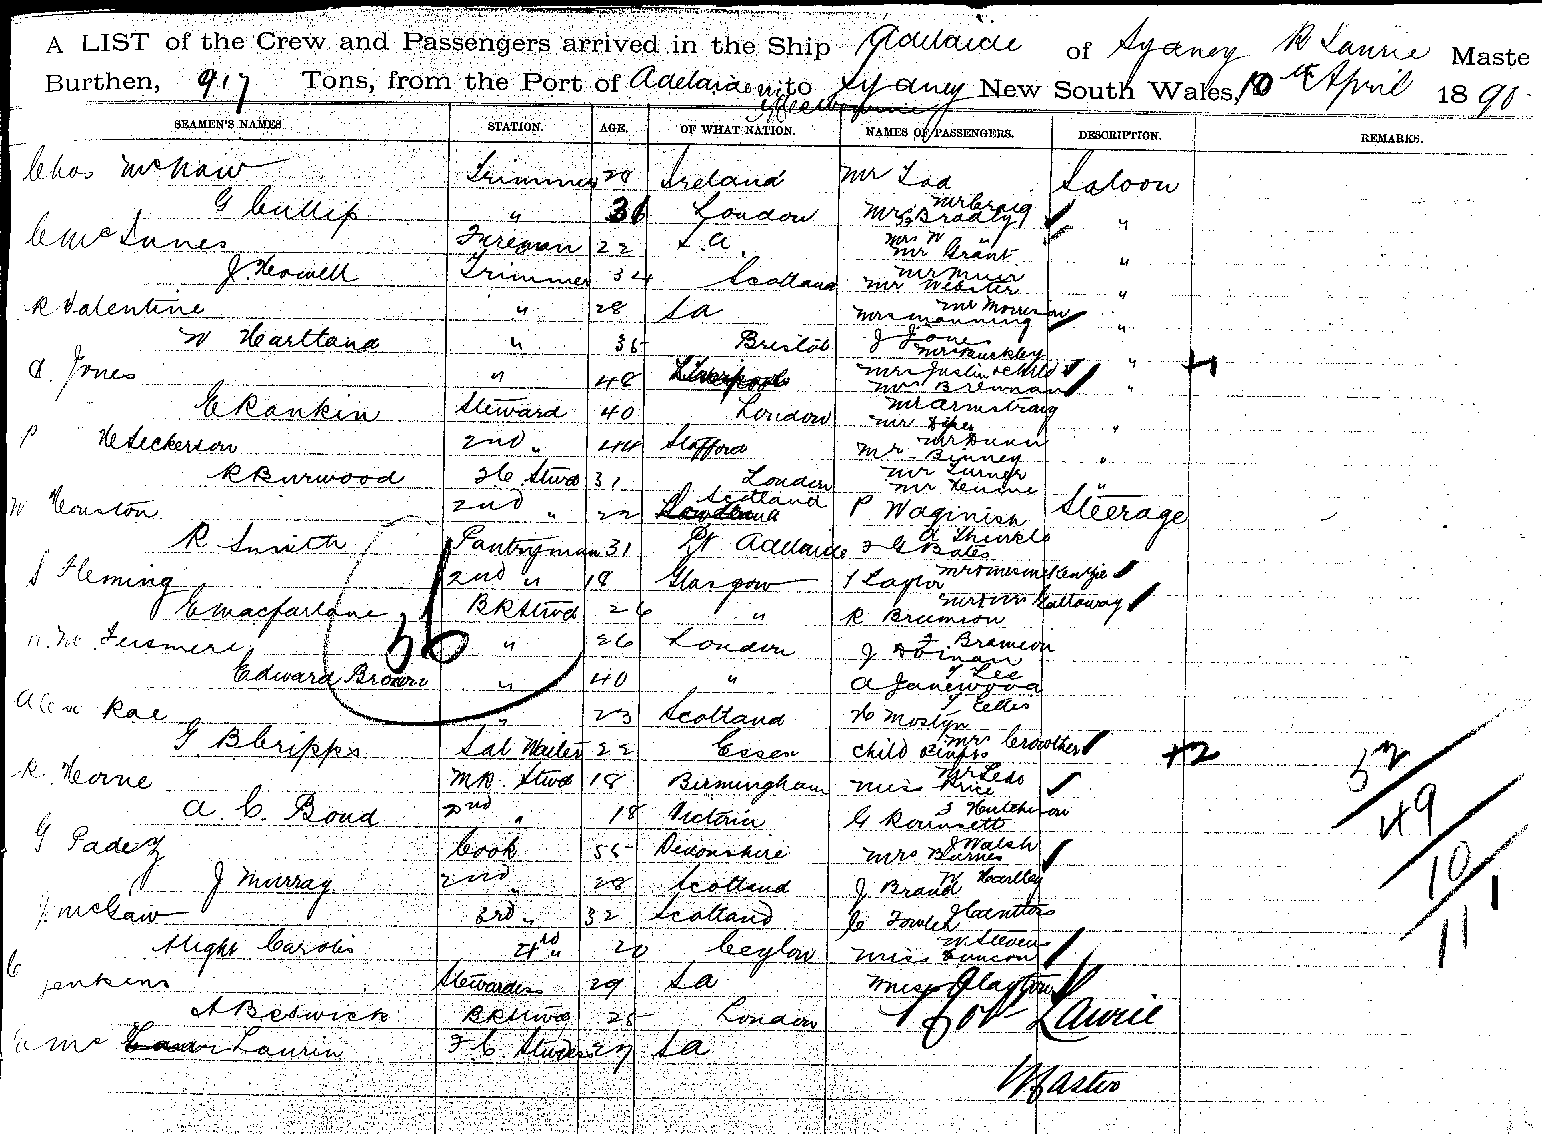 A LIST of the Crew and Passengers arrived in the Ship Adelaide of Sydney R Laurie Maste
Burthen, 917 Tons, from the Port of Adelaide to Sydney New South Wales, 10th April 1890
SEAMEN'S NAMES STATION. AGE. OF WHAT NATION. NAMES OF PASSENGERS. DESCRIPTION. REMARKS.
Chas McNaw Trimmer 28 Ireland Mr Saloon
G Cullip " 36 London Mr Craig
Mrs Bradly "
C McInnes Fireman 22 S.A. Mrs W "
Mr Grant "
J. Howell Trimmer 34 Scotland Mr Muir
Mr Webster "
R Valentine " 28 SA Mr Morrison
Mrs Manning "
W Hartland " 35 Bristol J Jones
Mrs Buckley "
A. Jones " 48 Liverpool Mrs Justin & child 4
Mrs Brennan "
E Rankin Steward 40 London Mr Armstrong
Mr "
P Heseckerson 2nd " 44 Stafford Mr Dunn
Mr Binney "
R Burwood F C Stwd 31 London Mr Turner
Mr Hume "
W Houston 2nd " 22 Scotland P Waginish Steerage
R Smith Pantryman 31 Pt Adelaide
F G Bates
S Fleming 2nd " 18 Glasgow T Taylor Mr & Mrs McKenzie
E Macfarlane BR Stwd 26 " R Bramson Mr & Mrs Galloway
56
" 26 London J F Bramson
Edward Brown " 40 " A Janewood T Lee
Alex Rae " 23 Scotland H Mostyn T Ellis
G B Cripps Sal Waiter 22 Essex Child Mrs Crowther +2
R. Horne MR. Stwd 18 Birmingham Miss Price Mr Lees
A. C. Bond 2nd " 18 Victoria G Rounsett J Hutchison
G Padey Cook 55 Devonshire Mrs Barnes J Walsh
J Murray 2nd " 28 Scotland J Brand W Hartley
J. McGaw 3rd " 32 Scotland C Fowler
Caroli " 20 Ceylon Miss Duncan W Stevens
C Jenkins Stewardess 29 SA Miss Clayton
A Beswick BR Stwd 25 London Robt Laurie
Mc Laurin F C 27 SA
Master
52
49
10
11
1